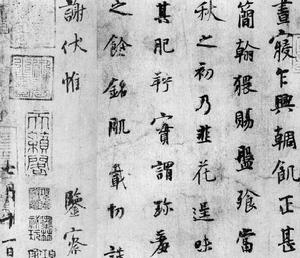 晝寢乍興輖飢正甚
簡翰猥賜盤飧當
秋之初乃韭花逞味
其肥羜實謂珍羞
之餘銘肌載切謹
謝伏惟 鑒察
七月十一日
天籟閣